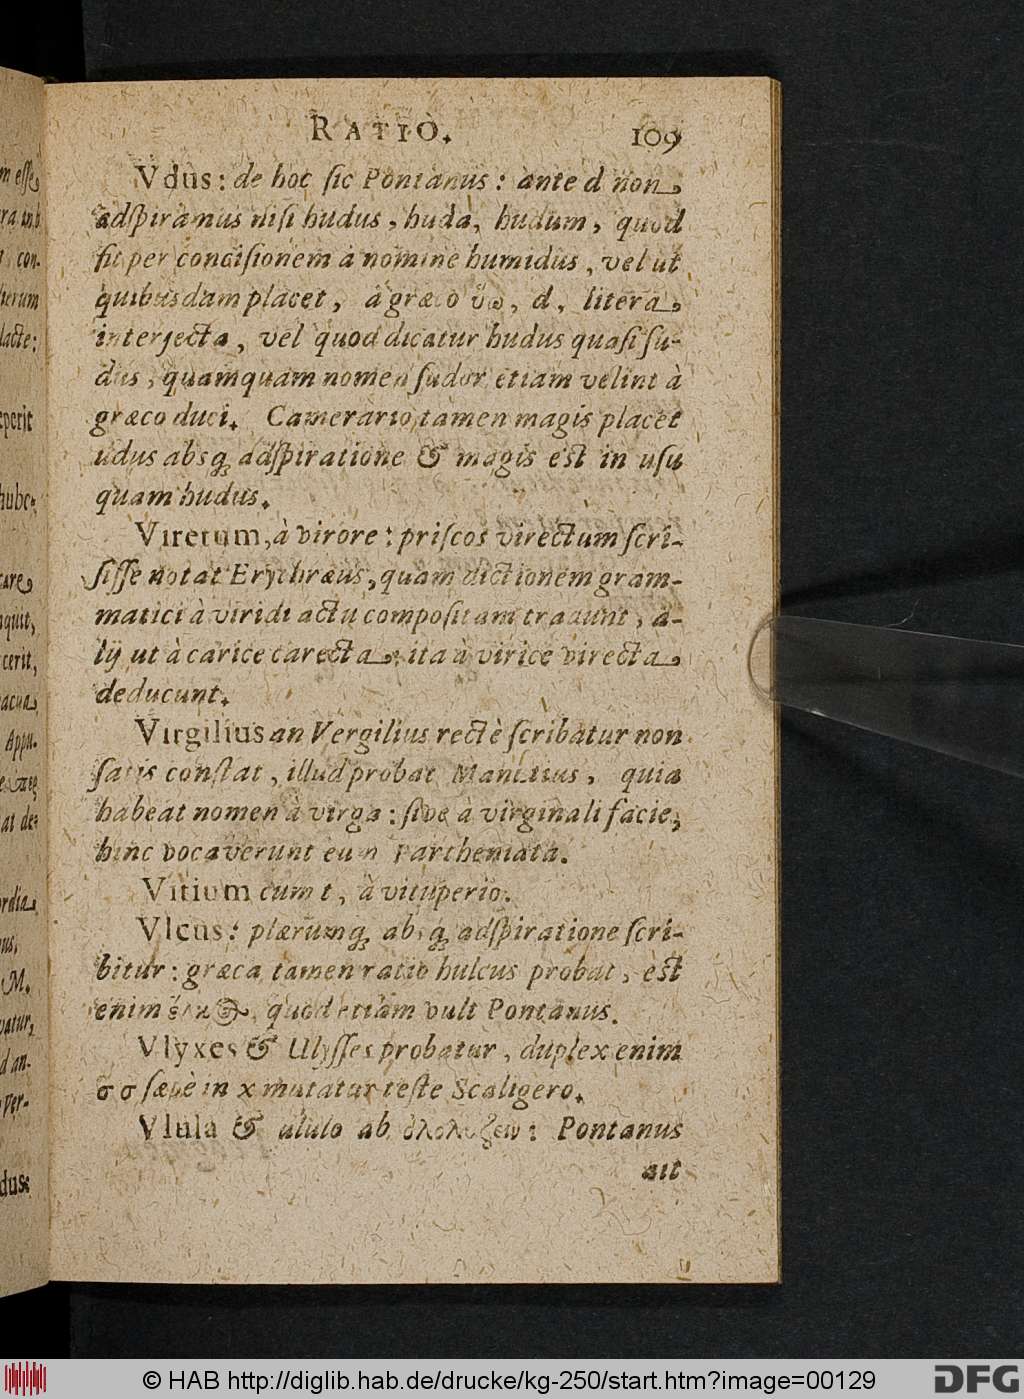 RATIO. 109
Vdus: de hoc ſic Pontanus: ante d non
adſpiramus niſi hudus, huda, hudum, quod
ſit per conciſionem à nomine humidus, vel ut
quibusdam placet, à græco ὕω, d, litera
interjecta, vel quod dicatur hudus quaſi ſu-
dus, quamquam nomen ſudor etiam velint à
græco duci. Camerario tamen magis placet
udus absq; adſpiratione & magis est in uſu
quam hudus.
Viretum, à virore: priſcos virectum ſcri-
ſiſſe notat Erythræus, quam dictionem gram-
matici à viridi actu compoſitam tradunt, a-
lij ut à carice carecta, ita à virice virecta
deducunt.
Virgilius an Vergilius rectè ſcribatur non
ſatis conſtat, illud probat Manutius, quia
habeat nomen à virga: ſive à virginali facie,
hinc vocaverunt eum Partheniata.
Vitium cum t, à vituperio.
Vlcus: plærumq; absq; adſpiratione ſcri-
bitur: græca tamen ratio hulcus probat, est
enim quod etiam vult Pontanus.
Vlyxes & Ulyſſes probatur, duplex enim
σ σ ſæpè in x mutatur teſte Scaligero.
Vlula & ululo ab ὀλολύζειν: Pontanus
ait
m eſſe
con-
lacte:
care
cerit,
Appu.
M.
d an-
per-
dus:
© HAB http://diglib.hab.de/drucke/kg-250/start.htm?image=00129
DFG